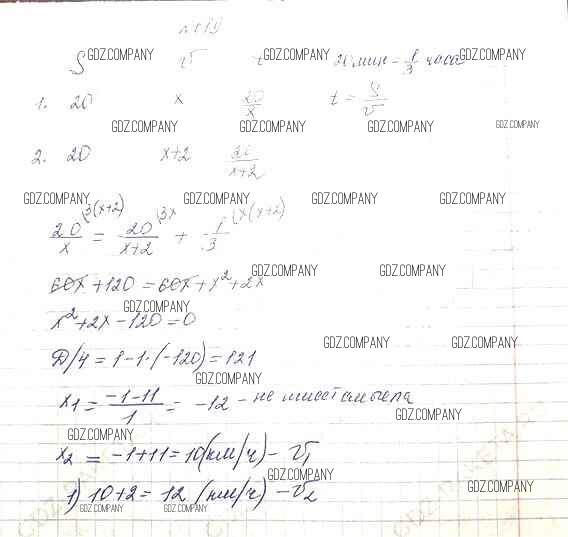 № 619
S GDZ.COMPANY v t 20 мин = 1/3 часа GDZ.COMPANY
1. 20 x 20/x t = S/v
GDZ.COMPANY GDZ.COMPANY GDZ.COMPANY GDZ.COMPANY
2. 20 x+2 20/(x+2)
GDZ.COMPANY GDZ.COMPANY GDZ.COMPANY GDZ.COMPANY
20/x \3(x+2) = 20/(x+2) \3x + 1/3 \x(x+2)
GDZ.COMPANY GDZ.COMPANY
60x + 120 = 60x + x² + 2x
GDZ.COMPANY
x² + 2x - 120 = 0
GDZ.COMPANY GDZ.COMPANY
Д/4 = 1 - 1·(-120) = 121
GDZ.COMPANY
x₁ = (-1-11)/1 = -12 - не имеет смысла
GDZ.COMPANY
GDZ.COMPANY
x₂ = -1+11 = 10 (км/ч) - v₁
GDZ.COMPANY
1) 10+2 = 12 (км/ч) - v₂
GDZ.COMPANY
GDZ.COMPANY GDZ.COMPANY